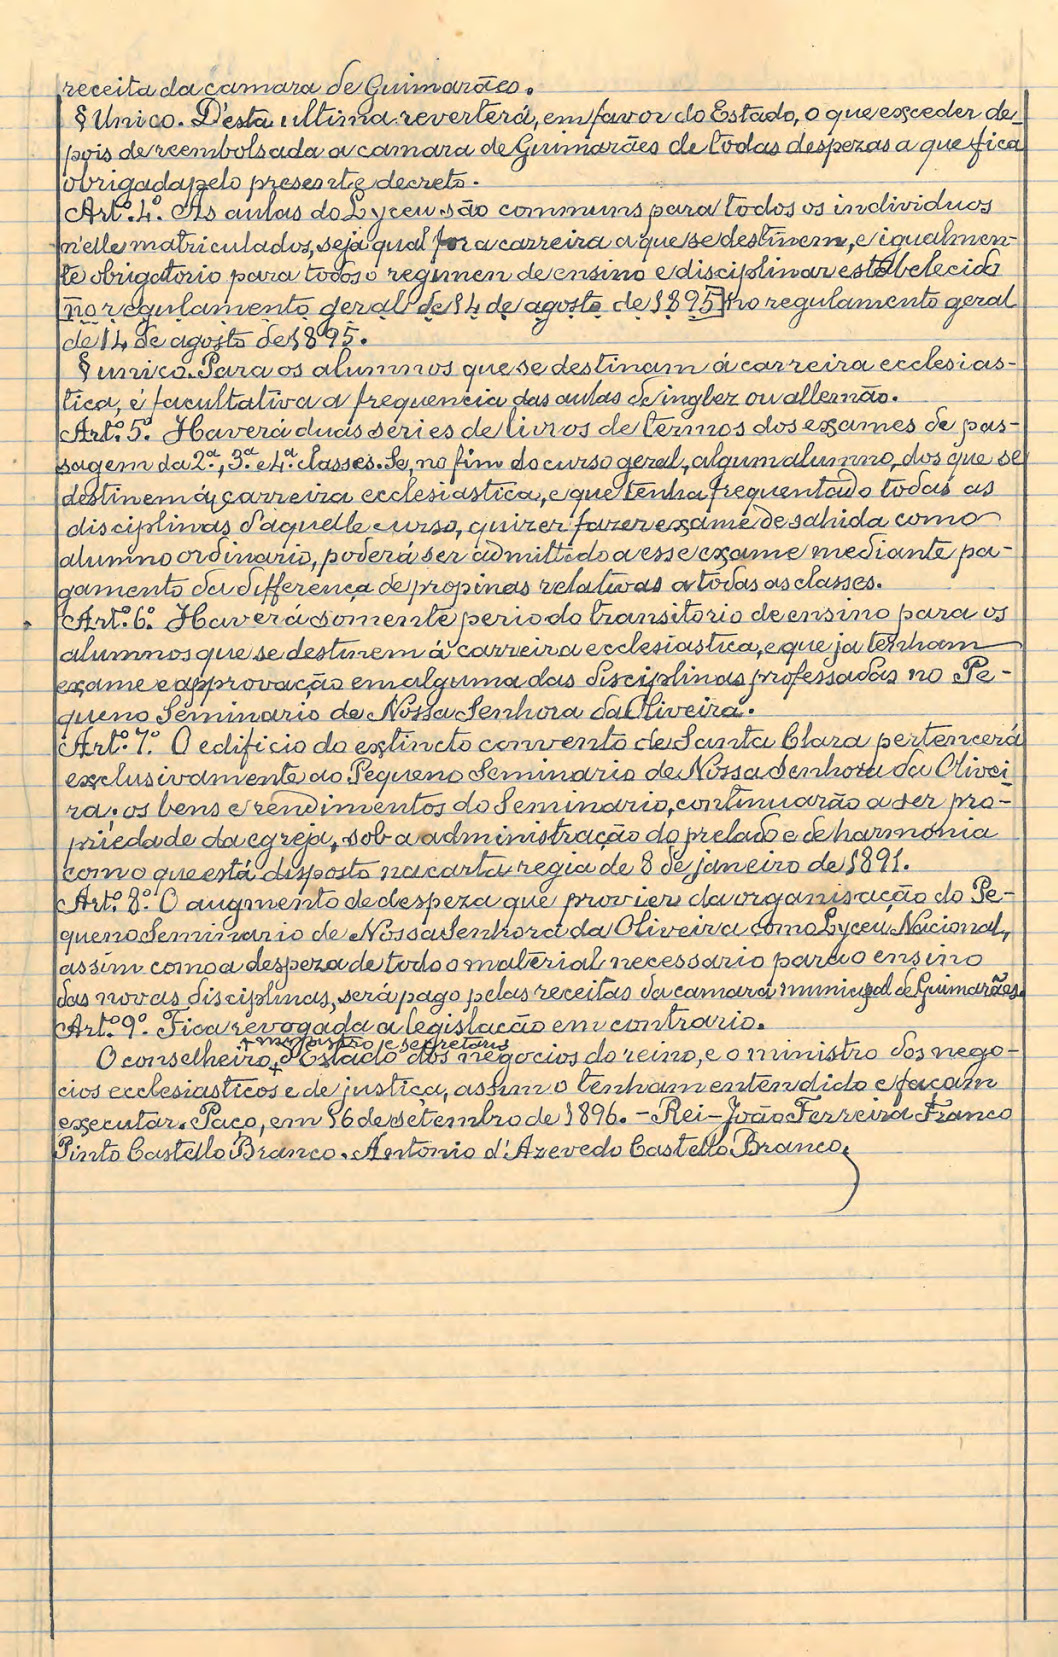 receita da camara de Guimarães.
§ Unico. D'esta ultima reverterá, em favor do Estado, o que exceder de-
pois de reembolsada a camara de Guimarães de todas despezas a que fica
obrigada pelo presente decreto.
Art.º 4.º As aulas do Lyceu são communs para todos os individuos
n'elle matriculados, seja qual for a carreira a que se destinem, e igualmen-
te obrigatorio para todos o regimen de ensino e disciplinar estabelecido
no regulamento geral de 14 de agosto de 1895] no regulamento geral
de 14 de agosto de 1895.
§ unico. Para os alumnos que se destinam á carreira ecclesias-
tica, é facultativa a frequencia das aulas de inglez ou allemão.
Art.º 5.º Haverá duas séries de livros de termos dos exames de pas-
sagem da 2.ª, 3.ª e 4.ª classes. Se, no fim do curso geral, algum alumno, dos que se
destinem á carreira ecclesiastica, e que tenha frequentado todas as
disciplinas d'aquelle curso, quizer fazer exame de sahida como
alumno ordinario, poderá ser admittido a esse exame mediante pa-
gamento da differença de propinas relativas a todas as classes.
Art.º 6.º Haverá somente periodo transitorio de ensino para os
alumnos que se destinem á carreira ecclesiastica, e que ja tenham
exame e approvação em alguma das disciplinas professadas no Pe-
queno Seminario de Nossa Senhora da Oliveira.
Art.º 7.º O edificio do extincto convento de Santa Clara pertencerá
exclusivamente ao Pequeno Seminario de Nossa Senhora da Olivei
ra; os bens e rendimentos do Seminario, continuarão a ser pro-
priedade da egreja, sob a administração do prelado e de harmonia
com o que está disposto na carta regia de 8 de janeiro de 1891.
Art.º 8.º O augmento de despeza que provier da organisação do Pe-
queno Seminario de Nossa Senhora da Oliveira como Lyceu Nacional,
assim como a despeza de todo o material necessario para o ensino
das novas disciplinas, será pago pelas receitas da camara municipal de Guimarães.
Art.º 9.º Fica revogada a legislação em contrario.
+ ministro e secretario
O conselheiro, + d'Estado dos negocios do reino, e o ministro dos nego-
cios ecclesiasticos e de justiça, assim o tenham entendido e façam
executar. Paço, em 16 de setembro de 1896. - Rei - João Ferreira Franco
Pinto Castello Branco. Antonio d'Azevedo Castello Branco.